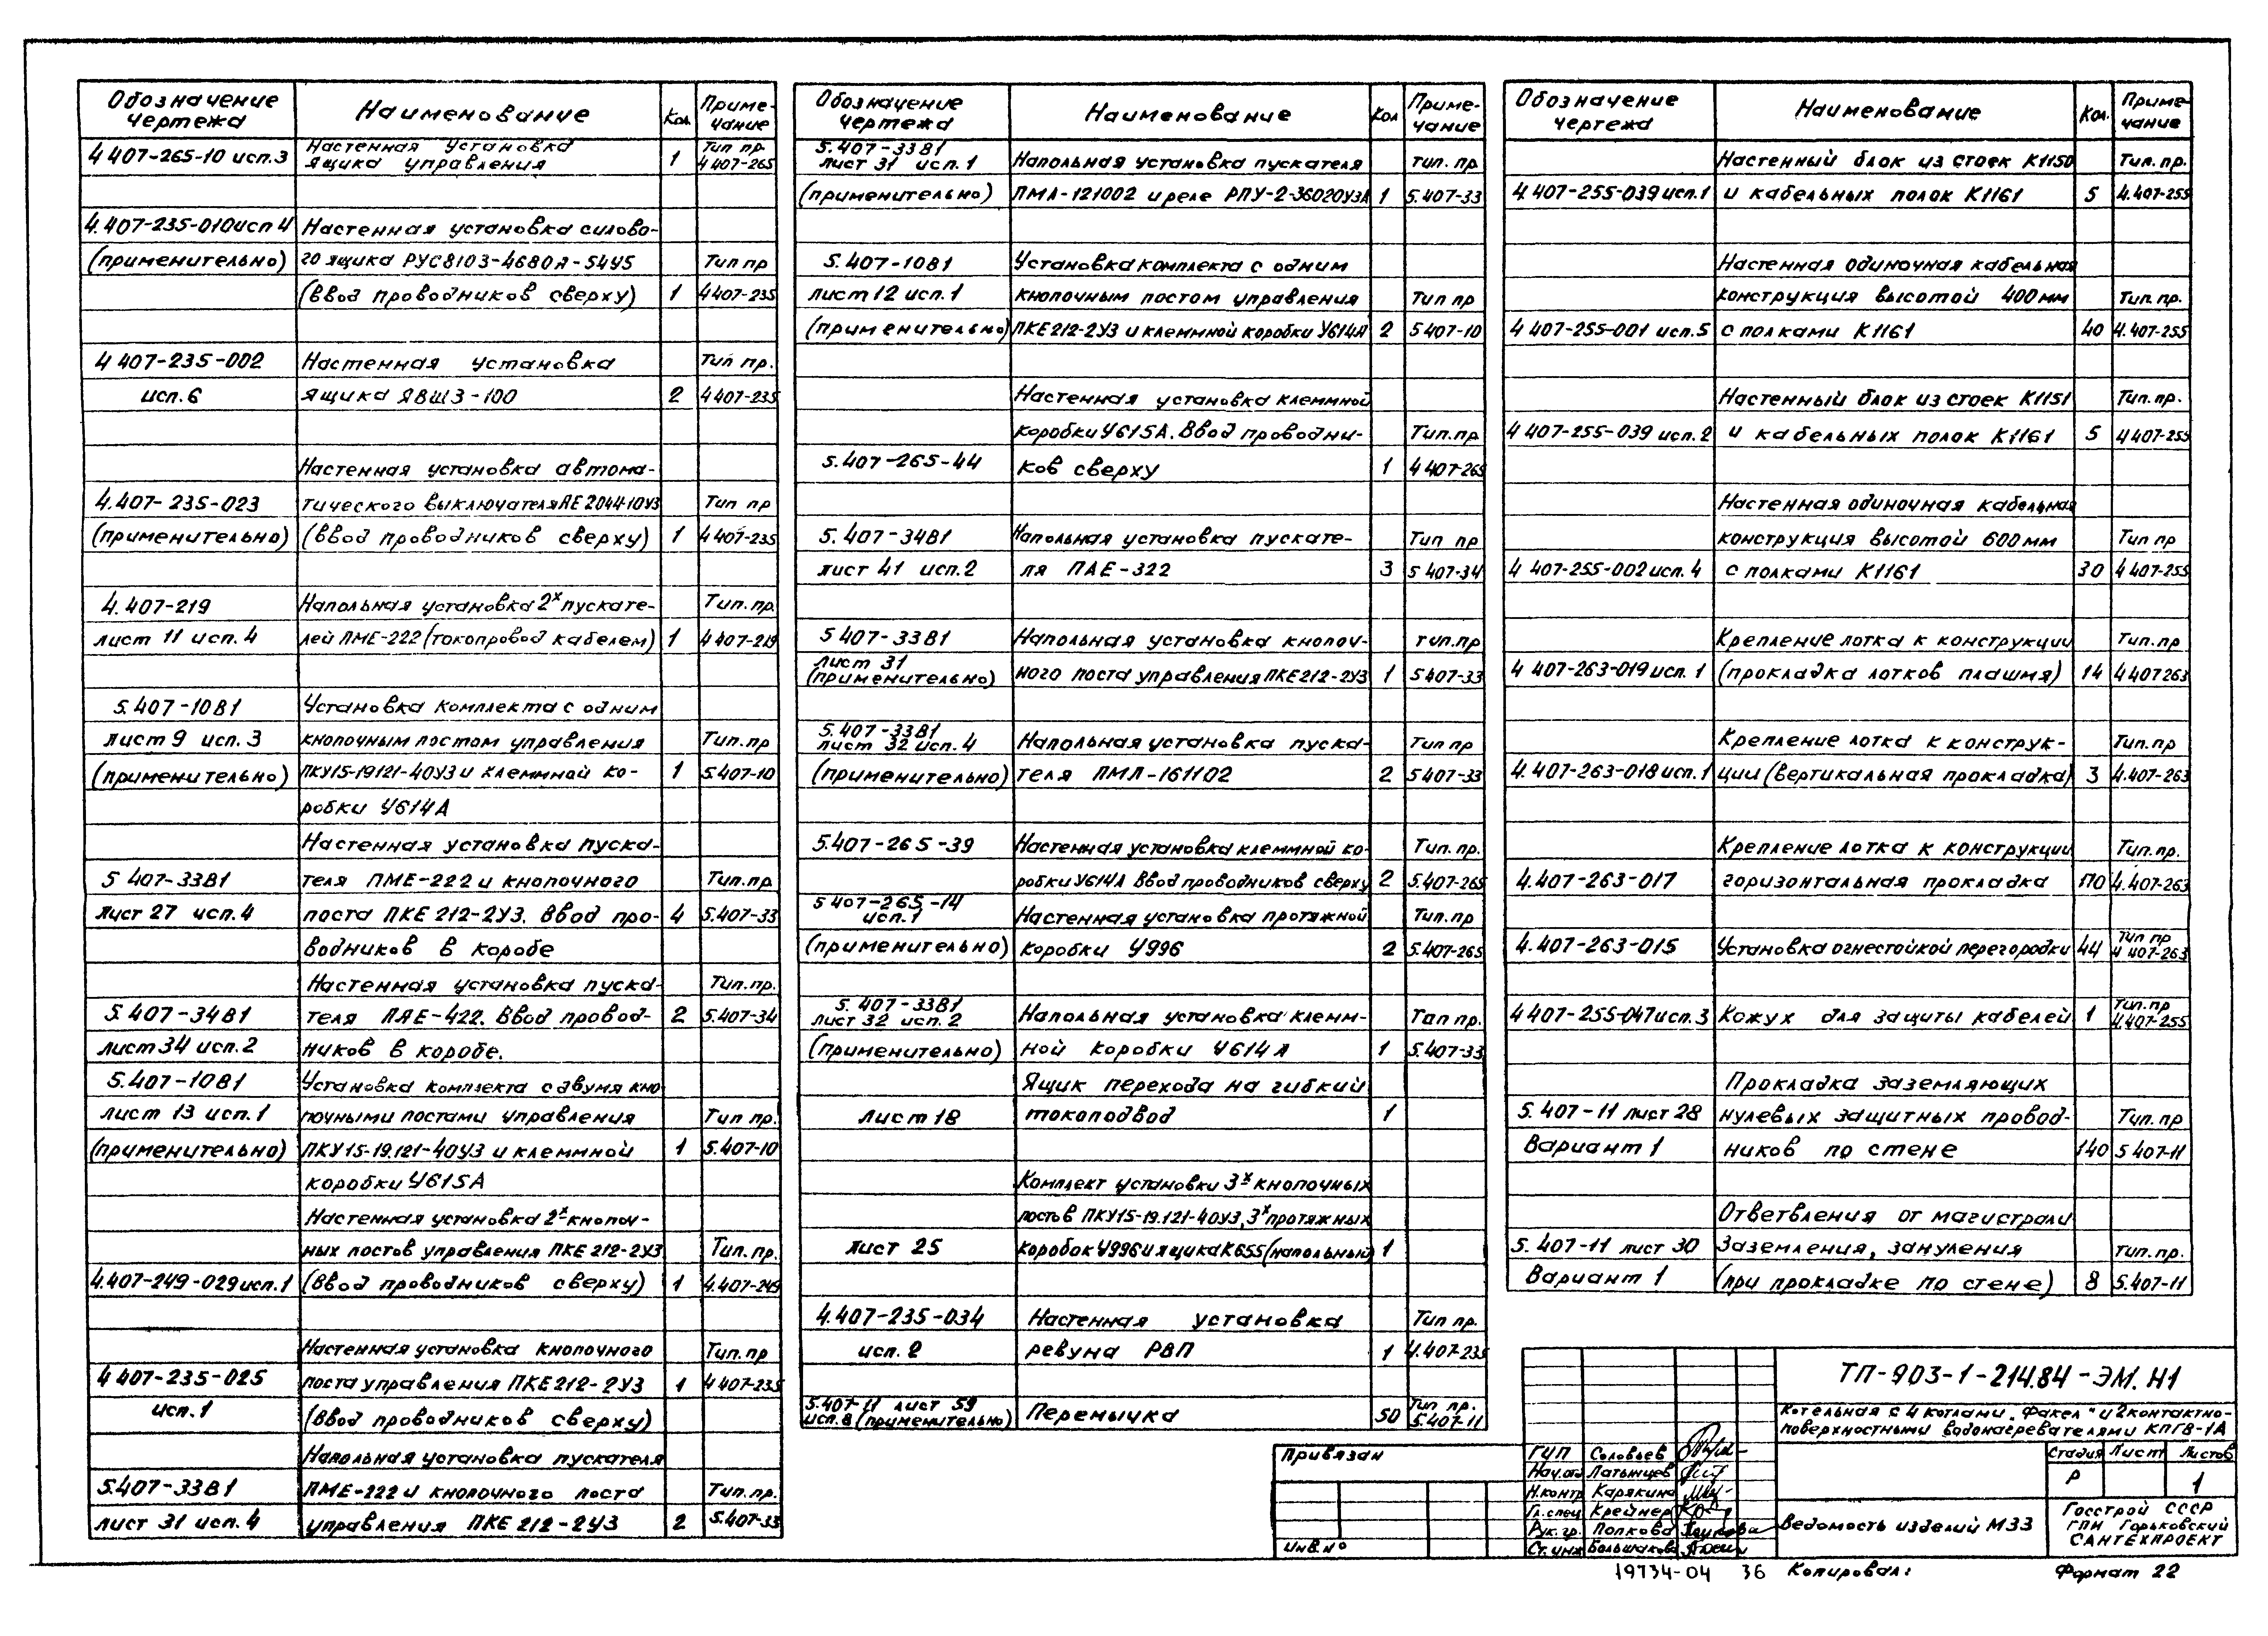 Обозначение чертежа Наименование Кол. Приме-чание
4 407-265-10 исп.3 Настенная установка ящика управления 1 Тип пр. 4 407-265
4.407-235-010 исп 4 Настенная установка силово-
(применительно) го ящика РУС8103-4680А-54У5 Тип пр
(ввод проводников сверху) 1 4 407-235
4 407-235-002 Настенная установка Тип пр.
исп. 6 ящика ЯВШ3-100 2 4 407-235
Настенная установка автома-
4.407-235-023 тического выключателя АЕ 2044-10У3 Тип пр
(применительно) (ввод проводников сверху) 1 4 407-235
4.407-219 Напольная установка 2х пускате- Тип. пр.
лист 11 исп. 4 лей ПМЕ-222 (токопровод кабелем) 1 4 407-219
5.407-10В1 Установка комплекта с одним
лист 9 исп. 3 кнопочным постом управления Тип. пр
(применительно) ПКУ15-19.121-40У3 и клеммной ко- 1 5.407-10
робки У614А
Настенная установка пуска-
5 407-33В1 теля ПМЕ-222 и кнопочного Тип.пр
лист 27 исп. 4 поста ПКЕ 212-2У3. Ввод про- 4 5.407-33
водников в коробе
Настенная установка пуска- Тип.пр.
5.407-34В1 теля ПАЕ-422. Ввод провод- 2 5.407-34
лист 34 исп. 2 ников в коробе.
5.407-10В1 Установка комплекта с двумя кно
лист 13 исп. 1 почными постами управления Тип пр.
(применительно) ПКУ15-19.121-40У3 и клеммной 1 5.407-10
коробки У615А
Настенная установка 2х кнопоч-
ных постов управления ПКЕ 212-2У3 Тип. пр.
4.407-249-029 исп. 1 (Ввод проводников сверху) 1 4.407-249
Настенная установка кнопочного Тип. пр
4 407-235-025 поста управления ПКЕ212-2У3 1 4 407-235
исп. 1 (ввод проводников сверху)
Напольная установка пускателя
5.407-33В1 ПМЕ-222 и кнопочного поста Тип. пр.
лист 31 исп. 4 управления ПКЕ 212-2У3 2 5.407-33
Обозначение чертежа Наименование Кол Приме-чание
5.407-33В1 лист 31 исп. 1 Напольная установка пускателя тип. пр
(применительно) ПМЛ-121002 и реле РПУ-2-36020У3А 1 5.407-33
5.407-10В1 Установка комплекта с одним
лист 12 исп. 1 кнопочным постом управления Тип пр
(применительно) ПКЕ 212-2У3 и клеммной коробки У614А 2 5 407-10
Настенная установка клеммной
коробки У615А. Ввод проводни- Тип.пр
5.407-265-44 ков сверху 1 4 407-265
5.407-34В1 Напольная установка пускате- Тип пр
лист 41 исп. 2 ля ПАЕ-322 3 5 407-34
5 407-33В1 Напольная установка кнопоч- тип.пр
лист 31 (применительно) ного поста управления ПКЕ212-2У3 1 5407-33
5.407-33В1 лист 32 исп. 4 Напольная установка пуска- Тип пр
(применительно) теля ПМЛ-161102 2 5 407-33
5.407-265-39 Настенная установка клеммной ко- Тип. пр.
робки У614А Ввод проводников сверху 2 5.407-265
5 407-265-14 исп. 1 Настенная установка протяжной Тип. пр
(применительно) коробки У996 2 5.407-265
5. 407-33В1 лист 32 исп. 2 Напольная установка клемм- Тап пр.
(применительно) ной коробки У614А 1 5.407-33
Ящик перехода на гибкий
лист 18 токоподвод 1
Комплект установки 3х кнопочных
постов ПКУ15-19.121-40У3, 3х протяжных
лист 25 коробок У996 и ящика К655 (напольный) 1
4.407-235-034 Настенная установка Тип пр.
исп. 2 ревуна РВП 1 4.407-235
5.407-11 лист 59 исп. 8 (применительно) Перемычка 50 Тип пр. 5.407-11
Обозначение чертежа Наименование Кол. Приме-чание
Настенный блок из стоек К1150 Тип. пр.
4 407-255-039 исп. 1 и кабельных полок К1161 5 4.407-255
Настенная одиночная кабельная
конструкция высотой 400 мм Тип. пр.
4 407-255-001 исп. 5 с полками К1161 40 4.407-255
Настенный блок из стоек К1151 Тип. пр.
4 407-255-039 исп. 2 и кабельных полок К1161 5 4 407-255
Настенная одиночная кабельная
конструкция высотой 600 мм Тип пр
4 407-255-002 исп. 4 с полками К1161 30 4 407-255
Крепление лотка к конструкции Тип.пр
4 407-263-019 исп. 1 (прокладка лотков плашмя) 14 4 407 263
Крепление лотка к конструк- Тип.пр
4.407-263-018 исп. 1 ции (вертикальная прокладка) 3 4.407-263
Крепление лотка к конструкции Тип. пр.
4.407-263-017 горизонтальная прокладка 170 4.407-263
4.407-263-015 Установка огнестойкой перегородки 44 Тип пр 4 407-263
4 407-255-047 исп. 3 Кожух для защиты кабелей 1 Тип. пр 4 407-255
Прокладка заземляющих
5.407-11 лист 28 нулевых защитных провод- Тип. пр
Вариант 1 ников по стене 140 5 407-11
Ответвления от магистрали
5. 407-11 лист 30 заземления, зануления тип. пр.
Вариант 1 (при прокладке по стене) 8 5.407-11
ТП-903-1-214.84-ЭМ.Н1
Котельная с 4 котлами „Факел" и 2 контактно-
поверхностными водонагревателями КПГВ-1А
Стадия Лист Листов
Р 1
Ведомость изделий МЗЗ
Госстрой СССР
ГПИ Горьковский
САНТЕХПРОЕКТ
Привязан
Инв. №
ГИП Соловьев
Нач.отд Латынцев
Н.контр Карякина
Гл.спец Крейнер
Рук. гр. Попкова
Ст. инж Большакова
19734-04 36 Копировал: Формат 22